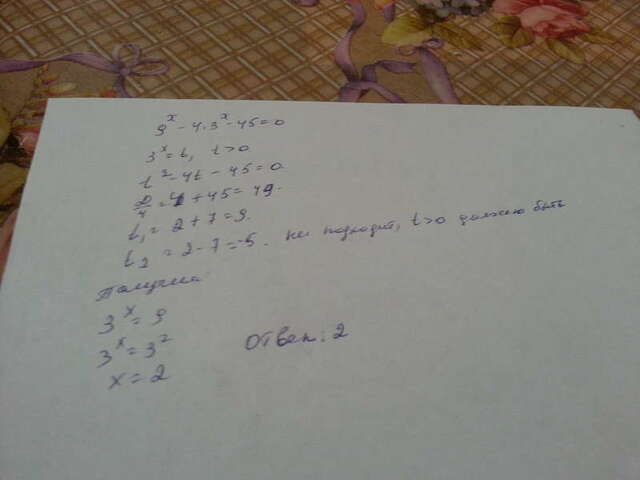 9^x - 4·3^x - 45 = 0
3^x = t, t > 0
t^2 - 4t - 45 = 0
D/4 = 4 + 45 = 49.
t₁ = 2 + 7 = 9.
t₂ = 2 - 7 = -5. не подходит, t > 0 должно быть
Получили:
3^x = 9
3^x = 3^2
x = 2
Ответ: 2